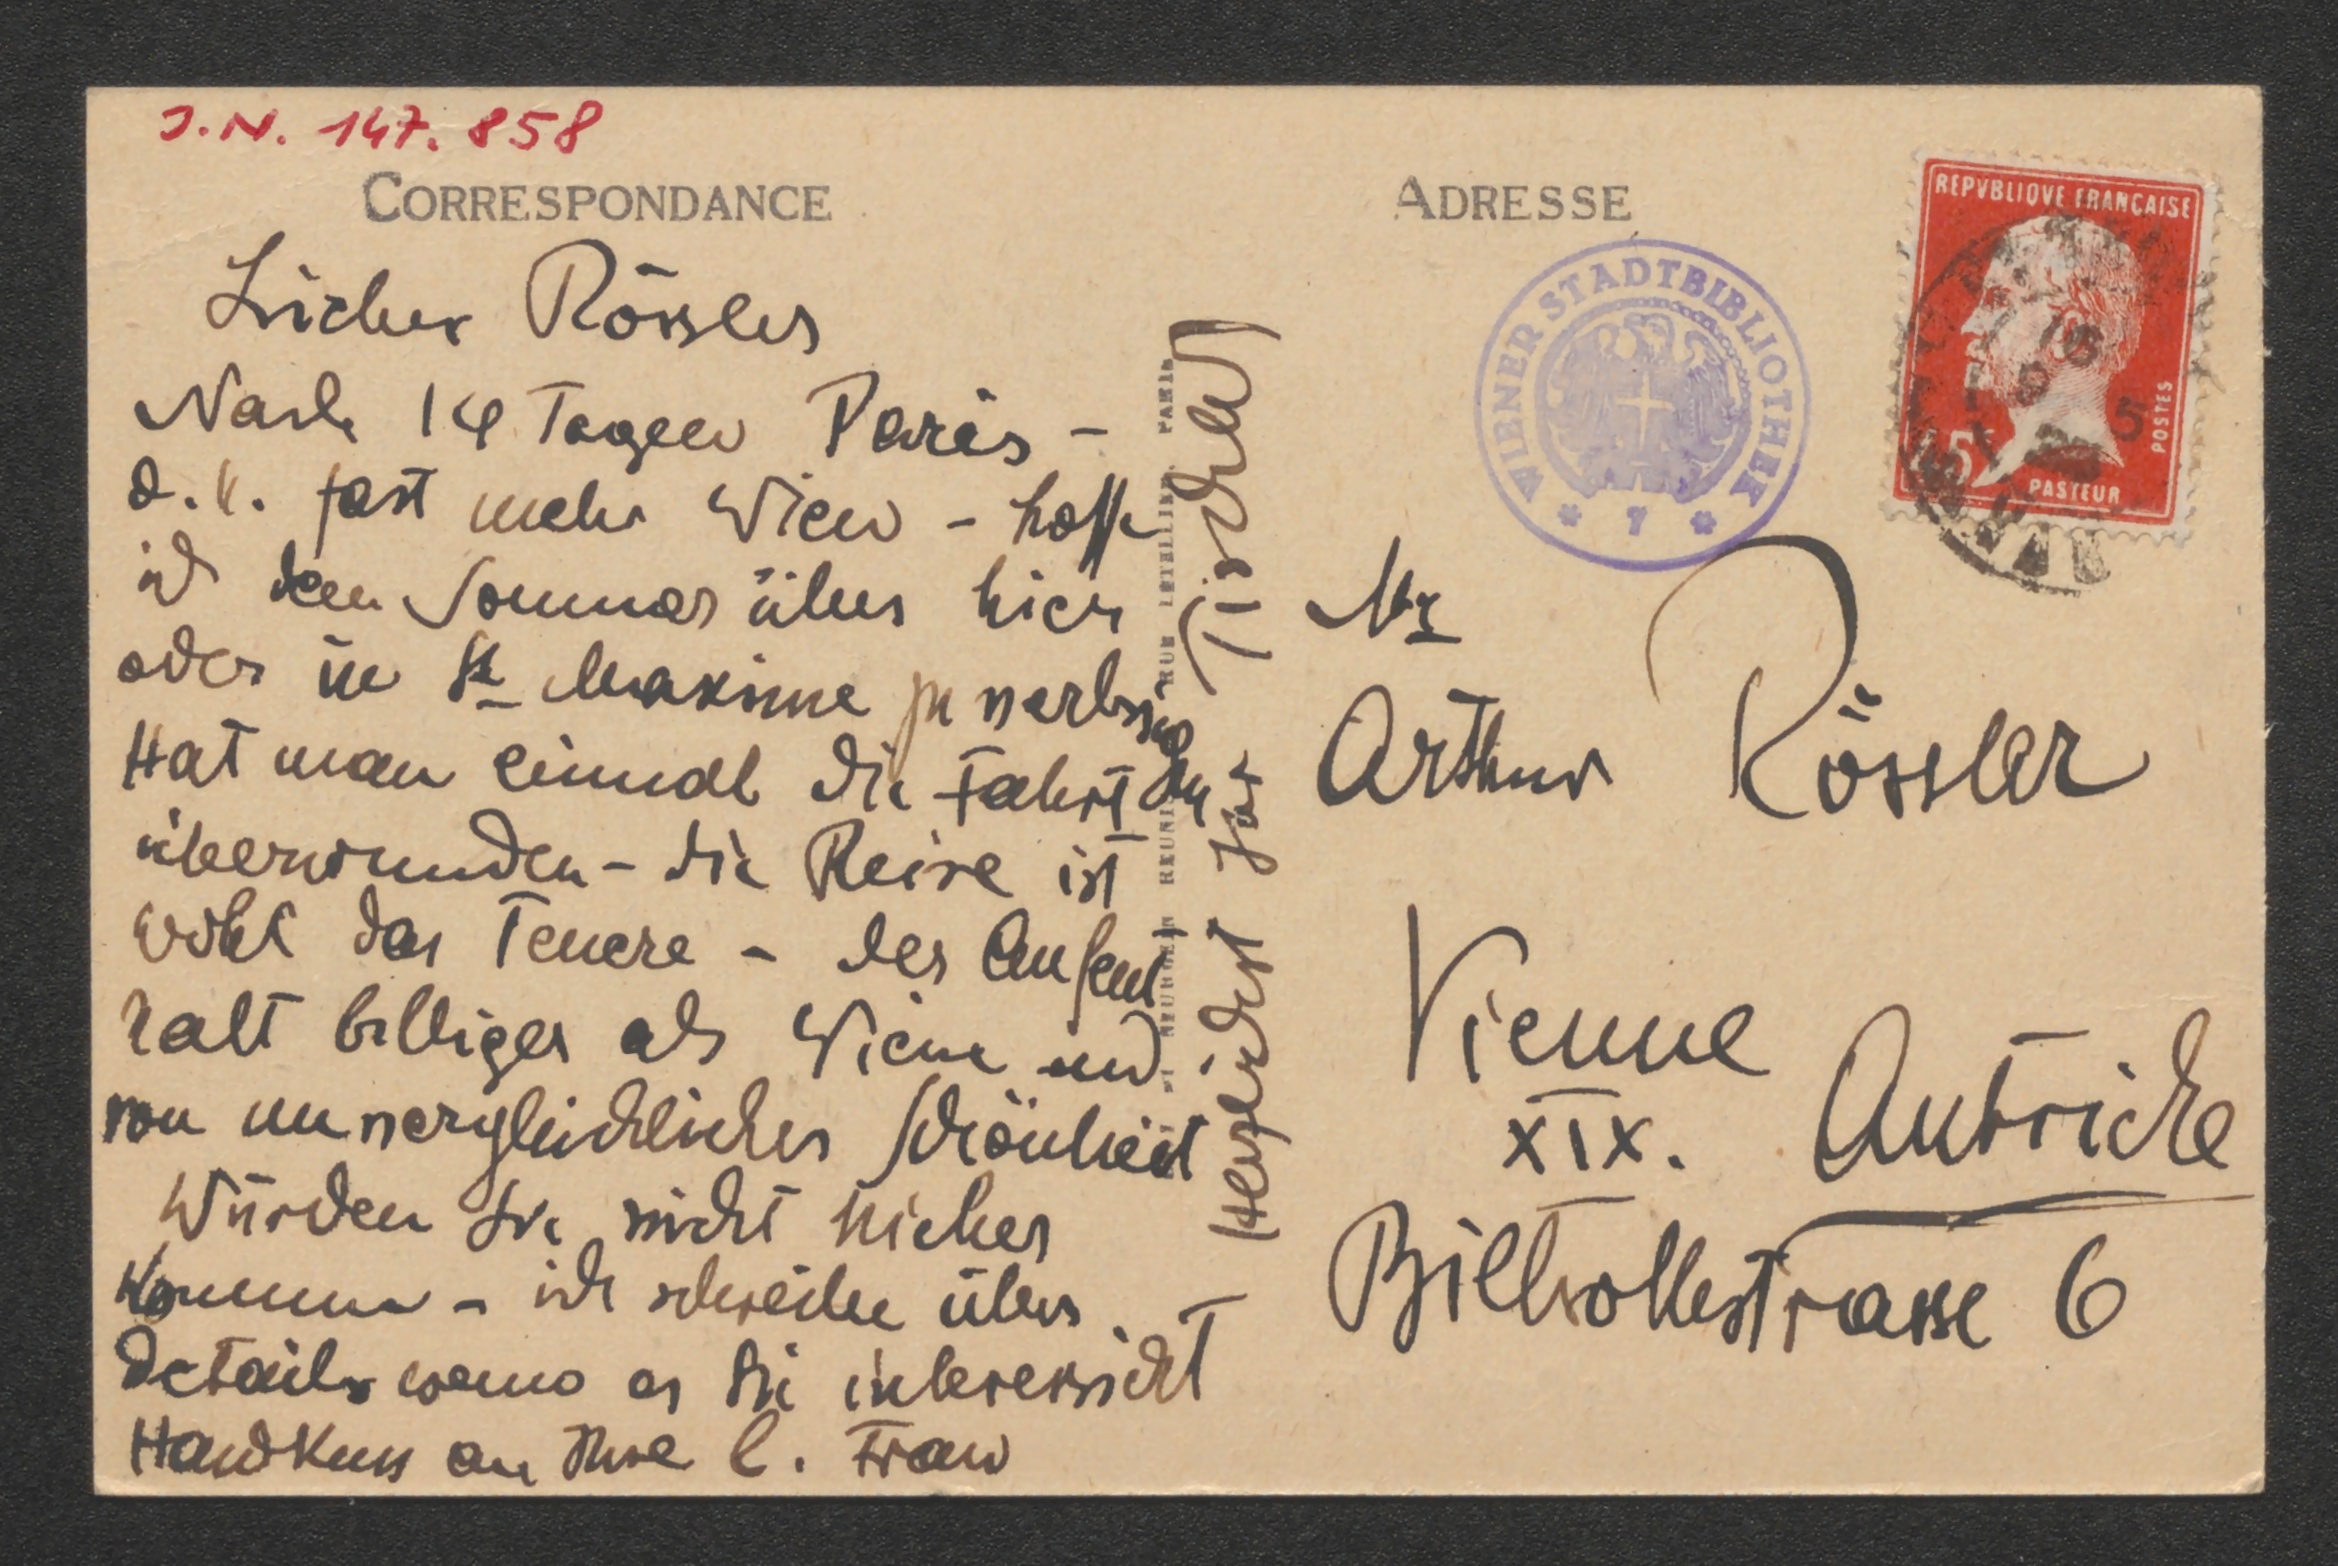 J.N. 147.858
CORRESPONDANCE
Lieber Rössler
Nach 14 Tagen Paris –
d.h. fast mehr Wien – hoffe
ich den Sommer über hier
oder in St Maxime zu verbringen
Hat man einmal die Fahrt
überwunden – die Reise ist
wohl das Teuere – der Aufent
halt billiger als Wien und
von unvergleichlicher Schönheit
Würden Sie nicht hieher
kommen – ich schreibe über
Details wenn es Sie interessiert
Handkuss an Ihre l. Frau
Herzlichst Ihr Tischler
ADRESSE
WIENER STADTBIBLIOTHEK
* 7 *
REPVBLIQVE FRANÇAISE
POSTES
45c
PASTEUR
Mr
Arthur Rössler
Vienne
XIX. Autriche
Billrothstrasse 6